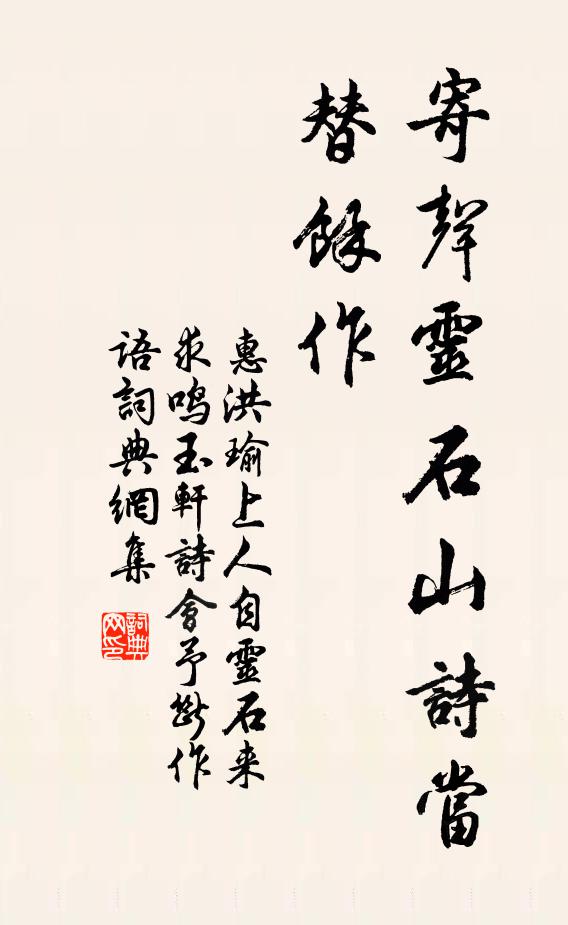 寄聲靈石山詩當
替餘作
惠洪瑜上人自靈石来
求鳴玉軒詩會予斷作
語詞典網集
詞典
网印